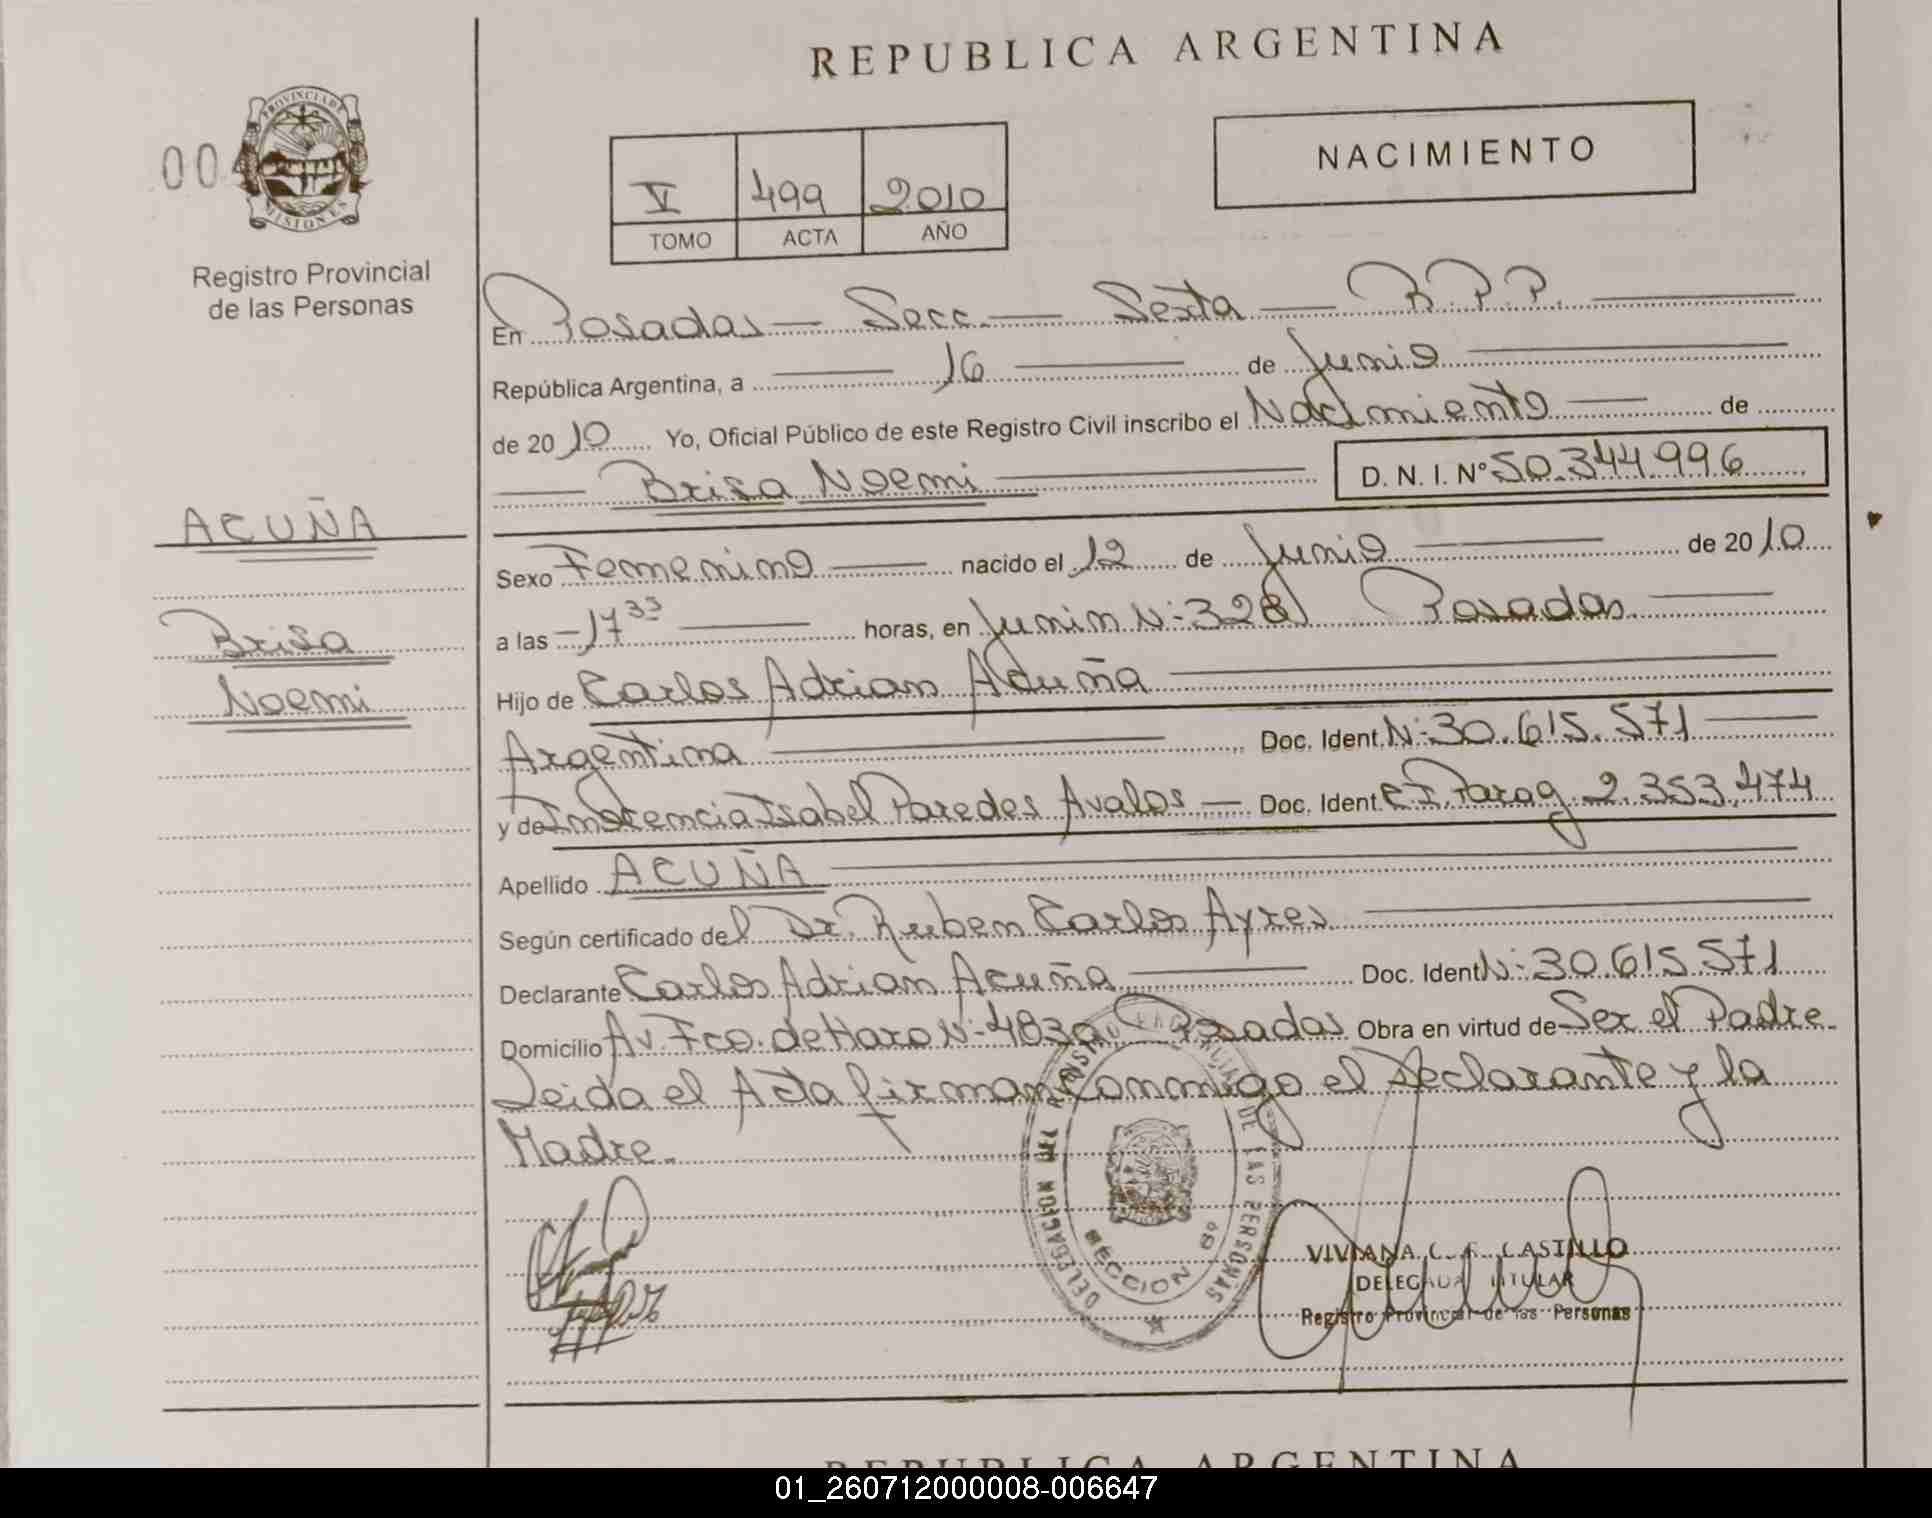 REPUBLICA ARGENTINA
004
PROVINCIA DE
MISIONES
Registro Provincial
de las Personas
V 499 2010
TOMO ACTA AÑO
NACIMIENTO
En Posadas — Secc. — Sexta — R.P.P.
República Argentina, a 16 de Junio
de 2010 Yo, Oficial Público de este Registro Civil inscribo el Nacimiento de
Brisa Noemi D. N. I. N° 50.344.996
ACUÑA
Brisa
Noemi
Sexo Femenino nacido el 12 de Junio de 2010
a las 17 33 horas, en Junin N: 328 Posadas
Hijo de Carlos Adrian Acuña
Argentina Doc. Ident. N: 30.615.571
y de Inocencia Isabel Paredes Avalos — Doc. Ident. C.I. Parag 2.353.474
Apellido ACUÑA
Según certificado del Dr. Ruben Carlos Ayres
Declarante Carlos Adrian Acuña Doc. Ident. N: 30.615.571
Domicilio Av. Fco. de Haro N: 4830 Posadas Obra en virtud de Ser el Padre.
Leida el Acta firman conmigo el Declarante y la
Madre.
SECCION 6°
DE LAS PERSONAS
VIVIANA C. F. CASTILLO
DELEGADA TITULAR
Registro Provincial de las Personas
REPUBLICA ARGENTINA
01_260712000008-006647